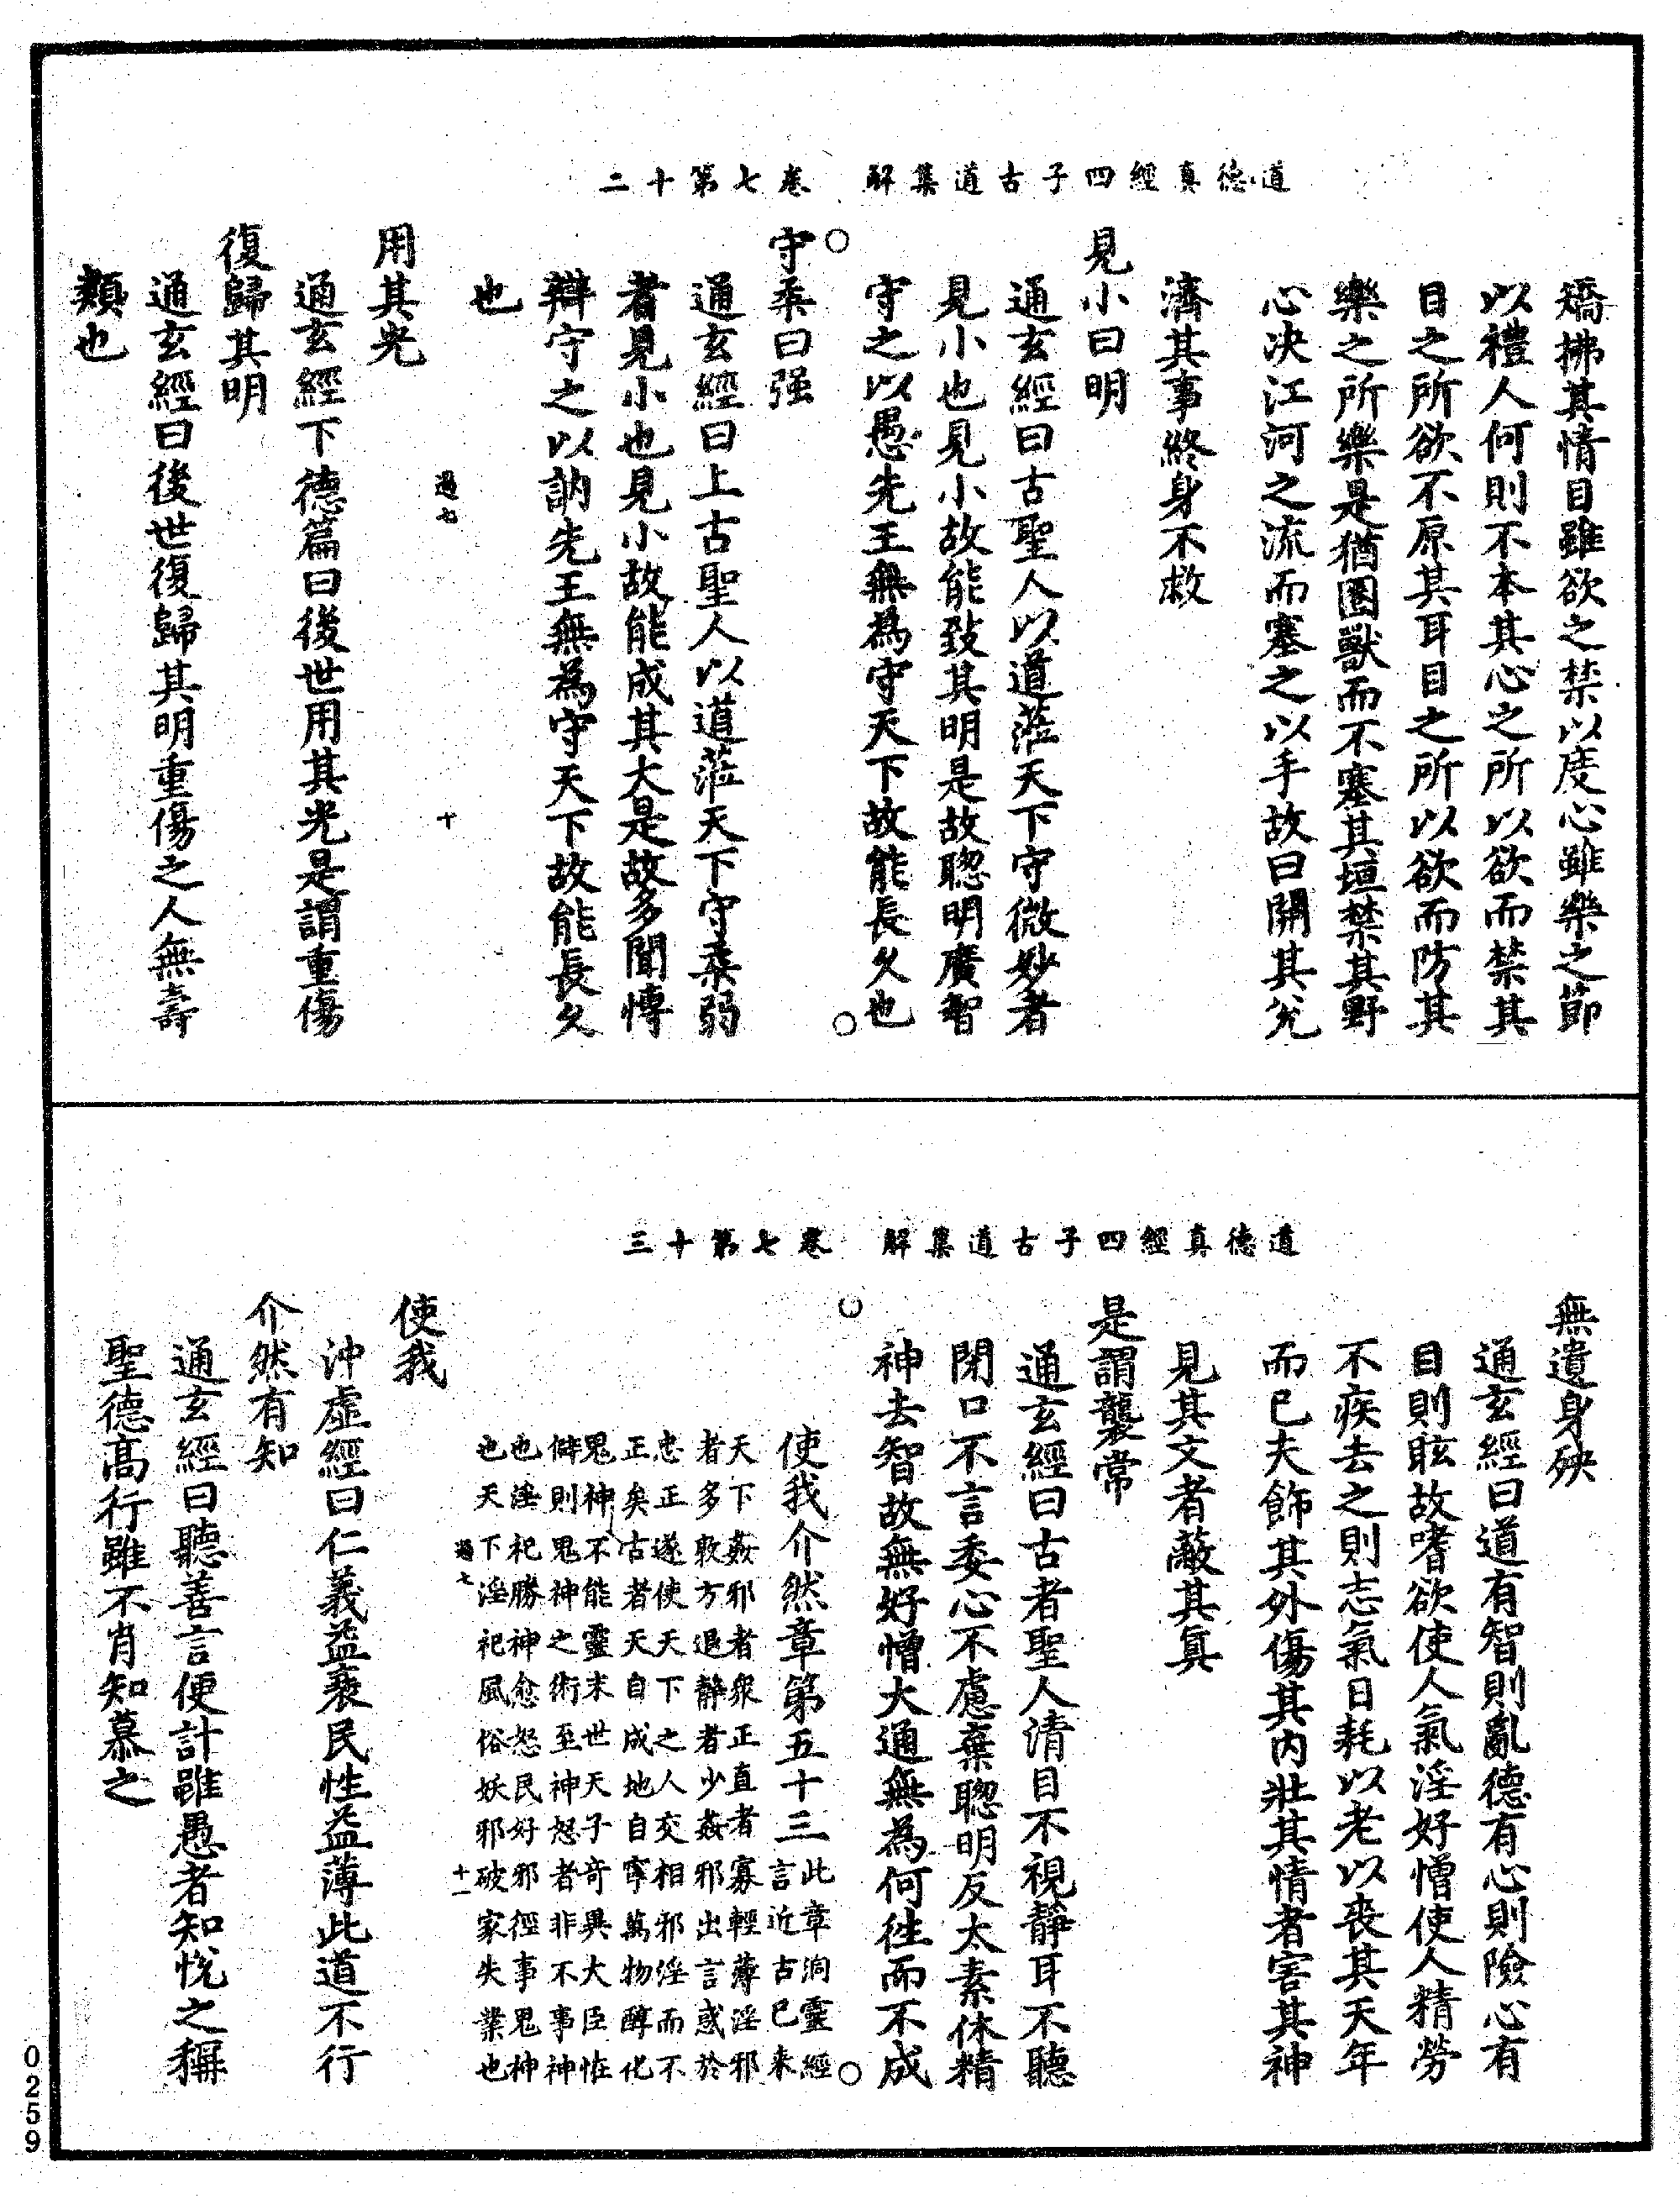 道德真經四子古道集解　卷七第十二
矯拂其情目雖欲之禁以度心雖樂之節
以禮人何則不本其心之所以欲而禁其
目之所欲不原其耳目之所以欲而防其
樂之所樂是猶圈獸而不塞其垣禁其野
心决江河之流而塞之以手故曰開其兌
濟其事終身不救
見小曰明
通玄經曰古聖人以道蒞天下守微妙者
見小也見小故能致其明是故聦明廣智
守之以愚先王無為守天下故能長久也
守柔曰强
通玄經曰上古聖人以道蒞天下守柔弱
者見小也見小故能成其大是故多聞愽
辯守之以訥先王無為守天下故能長久
也
過七　十
用其光
通玄經下德篇曰後世用其光是謂重傷
復歸其明
通玄經曰後世復歸其明重傷之人無壽
類也
道德真經四子古道集解　卷七第十三
無遺身殃
通玄經曰道有智則亂德有心則險心有
目則眩故嗜欲使人氣淫好憎使人精勞
不疾去之則志氣日耗以老以丧其天年
而已夫飾其外傷其内壯其情者害其神
見其文者蔽其真
是謂襲常
通玄經曰古者聖人清目不視靜耳不聽
閉口不言委心不慮棄聦明反太素休精
神去智故無好憎大通無為何徃而不成
使我介然章第五十三此章洞靈經
言近古已来
天下姦邪者衆正直者寡輕薄淫邪
者多敦方退静者少姦邪出言惑於
忠正遂使天下之人交相邪淫而不
正矣古者天自成地自寧萬物醇化
鬼神不能靈末世天子竒異大臣恠
僻則鬼神之術至神怒者非不事神
也淫祀勝神愈怒民好邪徑事鬼神
也天下淫祀風俗妖邪破家失業也
過七　十一
使我
沖虛經曰仁義益衰民性益薄此道不行
介然有知
通玄經曰聽善言便計雖愚者知悅之稱
聖德高行雖不肖知慕之
0259